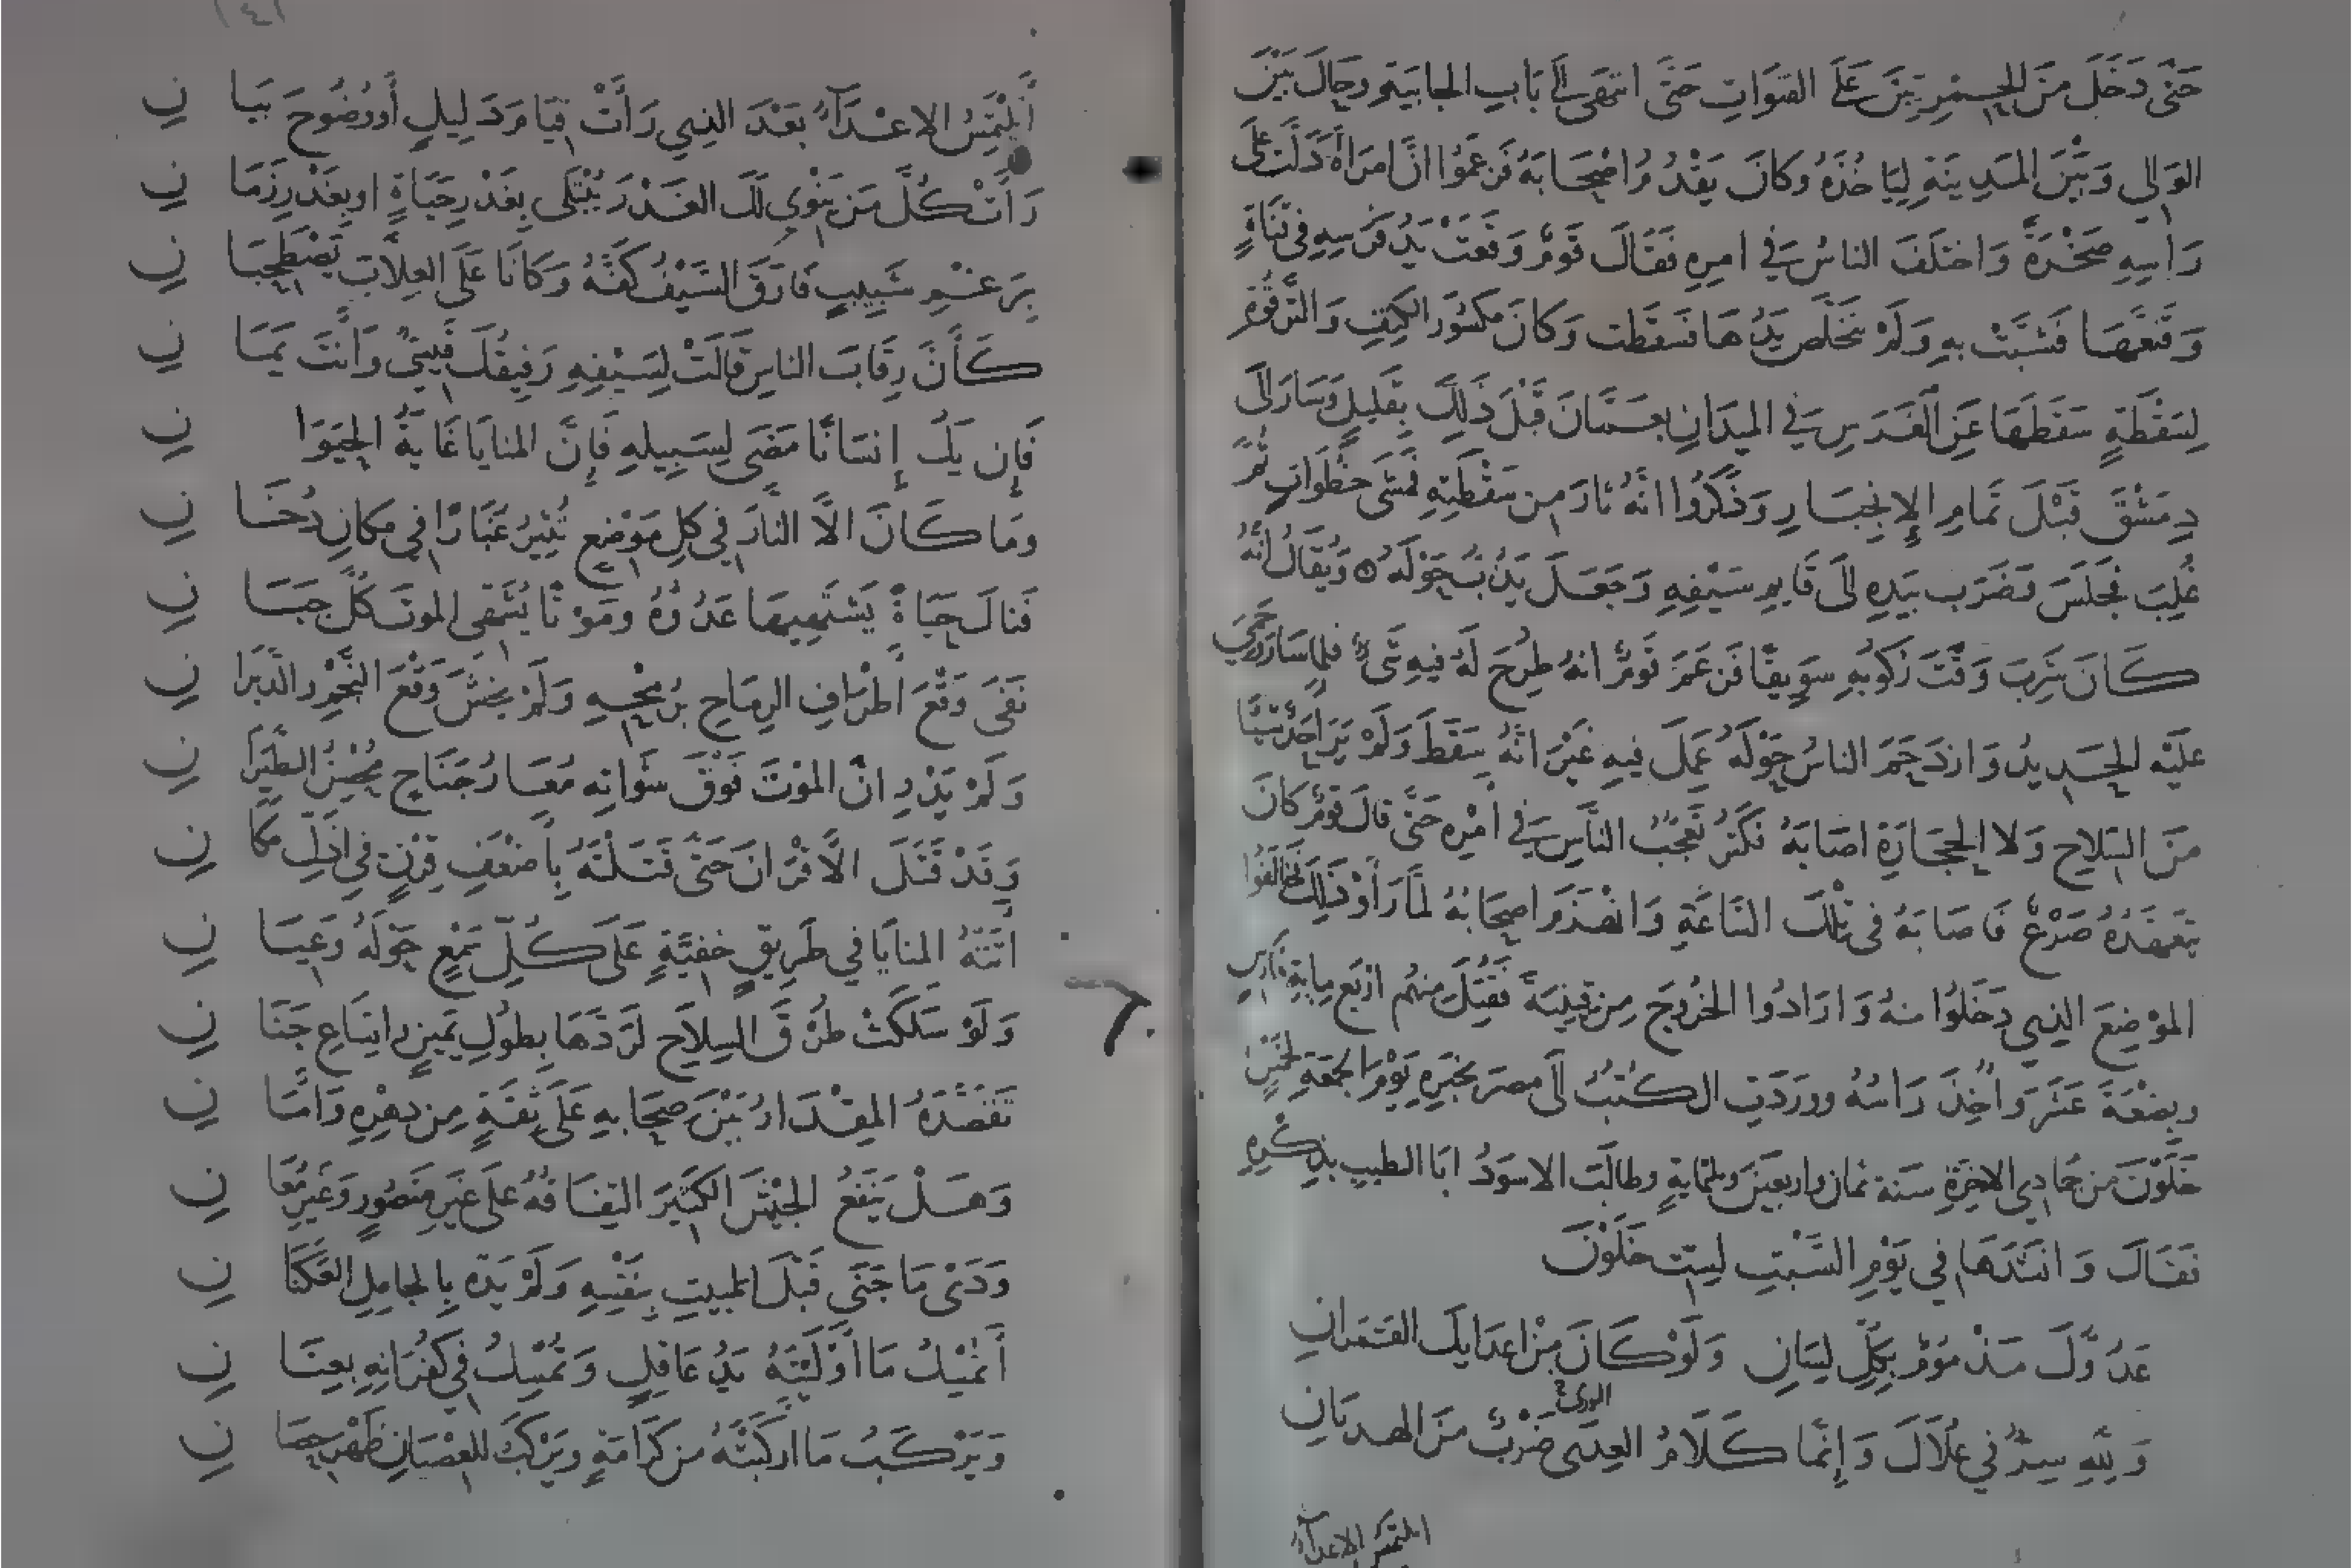 حَتَّى دَخَلَ مِنَ الجِسْرَيْنِ عَلَى القَنَوَاتِ حَتَّى انْتَهَى إِلَى بَابِ الجابِيَةِ وحَالَ بَيْنَ
الوَالِي وَبَيْنَ المَدِينَةِ لِيَاخُذَهُ وَكَانَ يَقْدُمُ اصْحَابَهُ فَزَعَمُوا انَّ امرَاةً دَلَّتْ عَلَى
رَاسِهِ صَخْرَةً وَاختَلَفَ الناسُ فِي امرِهِ فَقَالَ قَومٌ وَقَعَتْ يَدُ فَرَسِهِ فِي قَنَاةٍ
وَقَنعَّهَا فَشَبَّتْ بِهِ وَلَمْ تَخَلَّص يَدُهَا فَسَقَطَت وَكَانَ مَكسُورَ الكَتِفِ وَالتَّرقُوَةِ
لِسَقْطَةٍ سَقَطَهَا عَنِ الفَرَسِ فِي الميدَانِ بِعَمَّانَ قَبْلَ ذَلِكَ بِقَلِيلٍ وَسَارَ الَى
دِمَشْقَ قَبْلَ تَمَامِ الإِنجِبَارِ وَذَكَرُوا انَّهُ ثَارَ مِن سَقْطَتِهِ فَمَشَى خطَوَاتٍ ثُمَّ
غُلِبَ فَجَلَسَ فَضَرَبَ بِيَدِهِ الَى قَايِمِ سَيْفِهِ وَجَعَلَ يَذُبُّ حَوْلَهُ ⊙ وَيُقَالُ انَّهُ
كَانَ شَرِبَ وَقْتَ رُكُوبِهِ سَوِيقًا فَزعَمَ قَومٌ انهُ طُرِحَ لَهُ فيهِ شَىءٌ فلما سَارَ وحَمِيَ
عَلَيْه الحَدِيدُ وَازدَحَمَ الناسُ حَوْلَهُ عَمِلَ فيهِ غَيْرَ انَّهُ سَقَطَ وَلَمْ يَرَ احَدٌ شَيًّا
مِنَ السِّلاحِ وَلا الحِجَارَةِ اصَابَهُ فَكَثُرَ تَعَجُّبُ النَّاسِ فِي أَمْرِهِ حَتَّى قالَ قَومٌ كَانَ
يَتَعَهَّدُهُ صَرْعٌ فَاصَابَهُ فى تِلْكَ السَّاعَةِ وَانهَزَمَ اصحَابُهُ لَمَّا رَأَوْ ذَلِكَ فَخَالَفُوا
المَوْضِعَ الذِي دَخَلُوا منهُ وَارَادُوا الخُرُوجَ مِن فَقُتِلَ منهُم اربَع مِايةِ فَارِسٍ
وبِضْعَةَ عَشَرَ وَأُخِذَ رَاسُهُ ووَرَدَتِ الكُتُبُ الَى مصرَ بِخَبَرِهِ يَوْمَ الجُمعَةِ لخَمْسٍ
خَلَوْنَ مِن جُمَادى الاخِرَةِ سَنَة ثمان واربعينَ وثلثمايةٍ وطالَبَ الاسوَدُ ابَا الطيبِ بذِكْرِهِ
فَقَالَ وَانشَدَهَا فِي يَوْمِ السَّبْتِ لِسِتّ خَلَوْنَ
عَدُوُّكَ مَذْمُومٌ بِكُلِّ لِسَانِ وَلَوْ كَانَ مِنْ اعدَايِكَ القَمَرانِ
وَلِلّهِ سِرٌّ فِي عُلَاكَ وَإِنَّمَا كَلَامُ العِدَى ضَرْبٌ مِنَ الهَذيَانِ
الورى
اتلتمس الاعدآءُ
أَتَلْتَمِسُ الاعْدَآءُ بَعْدَ الذِي رَأَتْ قِيَامَ دَلِيلٍ أَو وُضُوحَ بَيَانِ
رَأَتْ كُلَّ مَن يَنْوِي لَكَ الغَدْرَ يُبْتَلَى بِغَدْرِ حَيَاةٍ او بِغَدْرِ زَمَانِ
بِرَغْمِ شَبِيبٍ فَارَقَ السَّيْفُ كَفَّهُ وَكَانَا عَلَى العِلَّاتِ يَصْطَحِبَانِ
كَأَنَّ رِقَابَ الناسِ قَالَتْ لِسَيْفِهِ رَفِيقُكَ قَيسِيٌّ وَأَنْتَ يَمَانِ
فَإِن يَكُ إِنسَانًا مَضَى لِسَبِيلِهِ فَإِنَّ المنايَا غَايَةُ الحَيَوَانِ
وَمَا كَانَ الَّا النَّارَ فِي كلِ مَوْضِعٍ تُثِيرُ غُبَارًا فِي مَكانِ دُخَانِ
فَنالَ حَيَاةً يَشتَهِيهَا عَدُوُّهُ ومَوْتًا يُشَهِّي الموتَ كُلَّ جَبَانِ
نَفَى وَقْعَ أَطْرَافِ الرِمَاحِ بِرُمْحِهِ وَلَمْ يَخْشَ وَقْعَ النَّجْمِ والدَّبَرَانِ
وَلَمْ يَدْرِ انَّ المَوْتَ فَوْقَ شَوَاتِه مُعَارُ جَنَاحٍ مُحْسِنُ الطَّيَرَانِ
وَقَدْ قَتَلَ الاَقْرَانَ حَتَّى قَتَلْتَهُ بِأَضْعَفِ قِرْنٍ فِي اذَلِّ مَكَانِ
اتَتْهُ المنايَا في طَرِيقٍ خَفِيَّةٍ عَلَى كُلِّ سَمْعٍ حَوْلَهُ وَعِيَانِ
وَلَوْ سَلَكَتْ طُرْقَ السِلَاحِ لَرَدَّهَا بِطُولِ يَمِينٍ واتِّسَاعِ جَنَانِ
تَقَصَّدَهُ المِقْدَارُ بَيْنَ صِحَابِهِ عَلَى ثِقَةٍ مِن دهْرِهِ وَأَمَانِ
وَهَلْ يَنْفَعُ الجَيْشَ الكَثِيرَ التِفَافُهُ عَلَى غَيرِ مَنصُورٍ وَغَيرِ مُعَانِ
وَدَى مَا جَنَى قَبْلَ المَبِيتِ بِنَفْسِهِ وَلَمْ يَدِهِ بِالجامِلِ العَكَنَانِ
أَتُمْسِكُ مَا أَوْلَيْتَهُ يَدُ عَاقِلٍ وَتُمْسِكُ فِي كُفْرَانِهِ بِعِنَانِ
وَيَرْكَبُ مَا ارْكَبْتَهُ مِن كَرَامَةٍ ويَرْكَبُ للعِصْيَانِ ظَهْرَ حِصَانِ